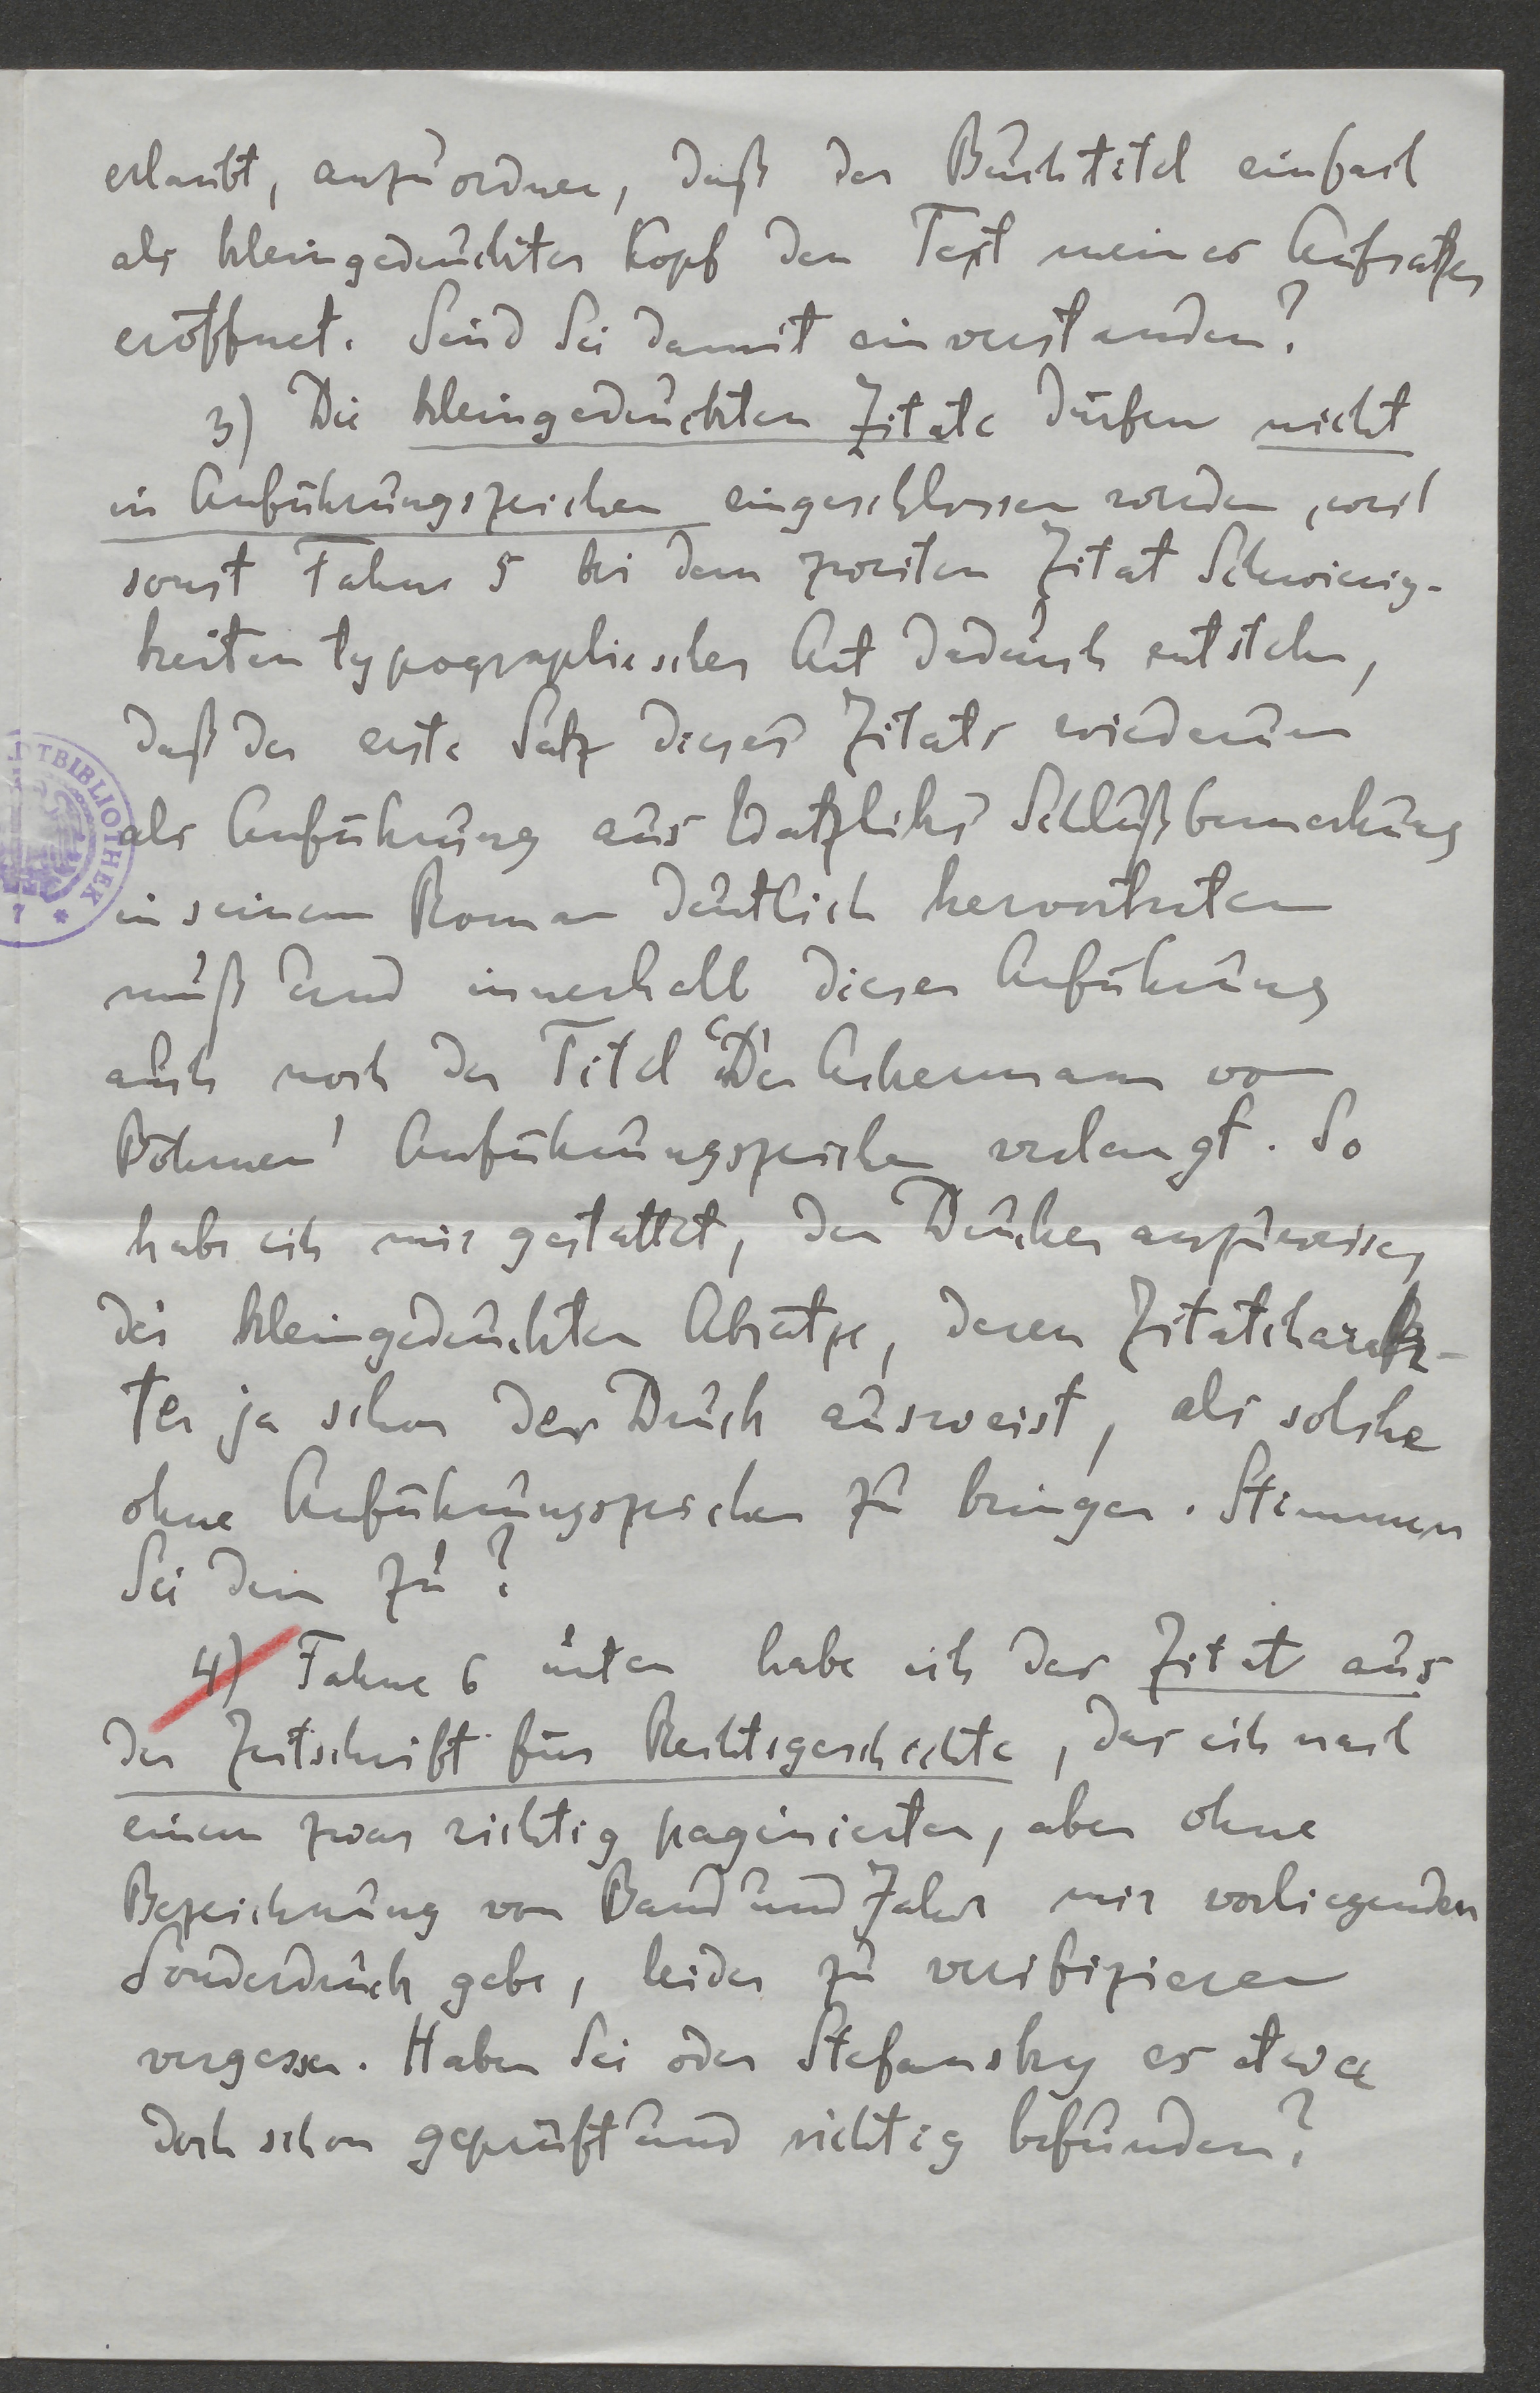 erlaubt, anzuordnen, daß der Buchtitel einfach
als kleingedruckter Kopf den Text meines Aufsatzes
eröffnet. Sind Sie damit einverstanden?
3) Die kleingedruckten Zitate dürfen nicht
in Anführungszeichen eingeschlossen werden, weil
sonst Fahne 5 bei dem zweiten Zitat Schwierig-
keiten typographischer Art dadurch entstehn,
daß der erste Satz dieses Zitats wiederum
als Anführung aus Watzliks Schlußbemerkung
in seinem Roman deutlich hervortreten
muß und innerhalb dieser Anführung
auch noch der Titel ‘Der Ackermann von
Böhmen’ Anführungszeichen verlangt. So
habe ich mir gestattet, den Drucker anzuweisen,
die kleingedruckten Absätze, deren Zitatcharak-
ter ja schon der Druck ausweist, als solche
ohne Anführungszeichen zu bringen. Stimmen
Sie dem zu?
4) Fahne 6 unten habe ich das Zitat aus
der Zeitschrift für Rechtsgeschichte, das ich nach
einem zwar richtig paginierten, aber ohne
Bezeichnung von Band und Jahr mir vorliegenden
Sonderdruck gebe, leider zu verifizieren
vergessen. Haben Sie oder Stefansky es etwa
doch schon geprüft und richtig befunden?
TBIBLIOTHEK
7 *